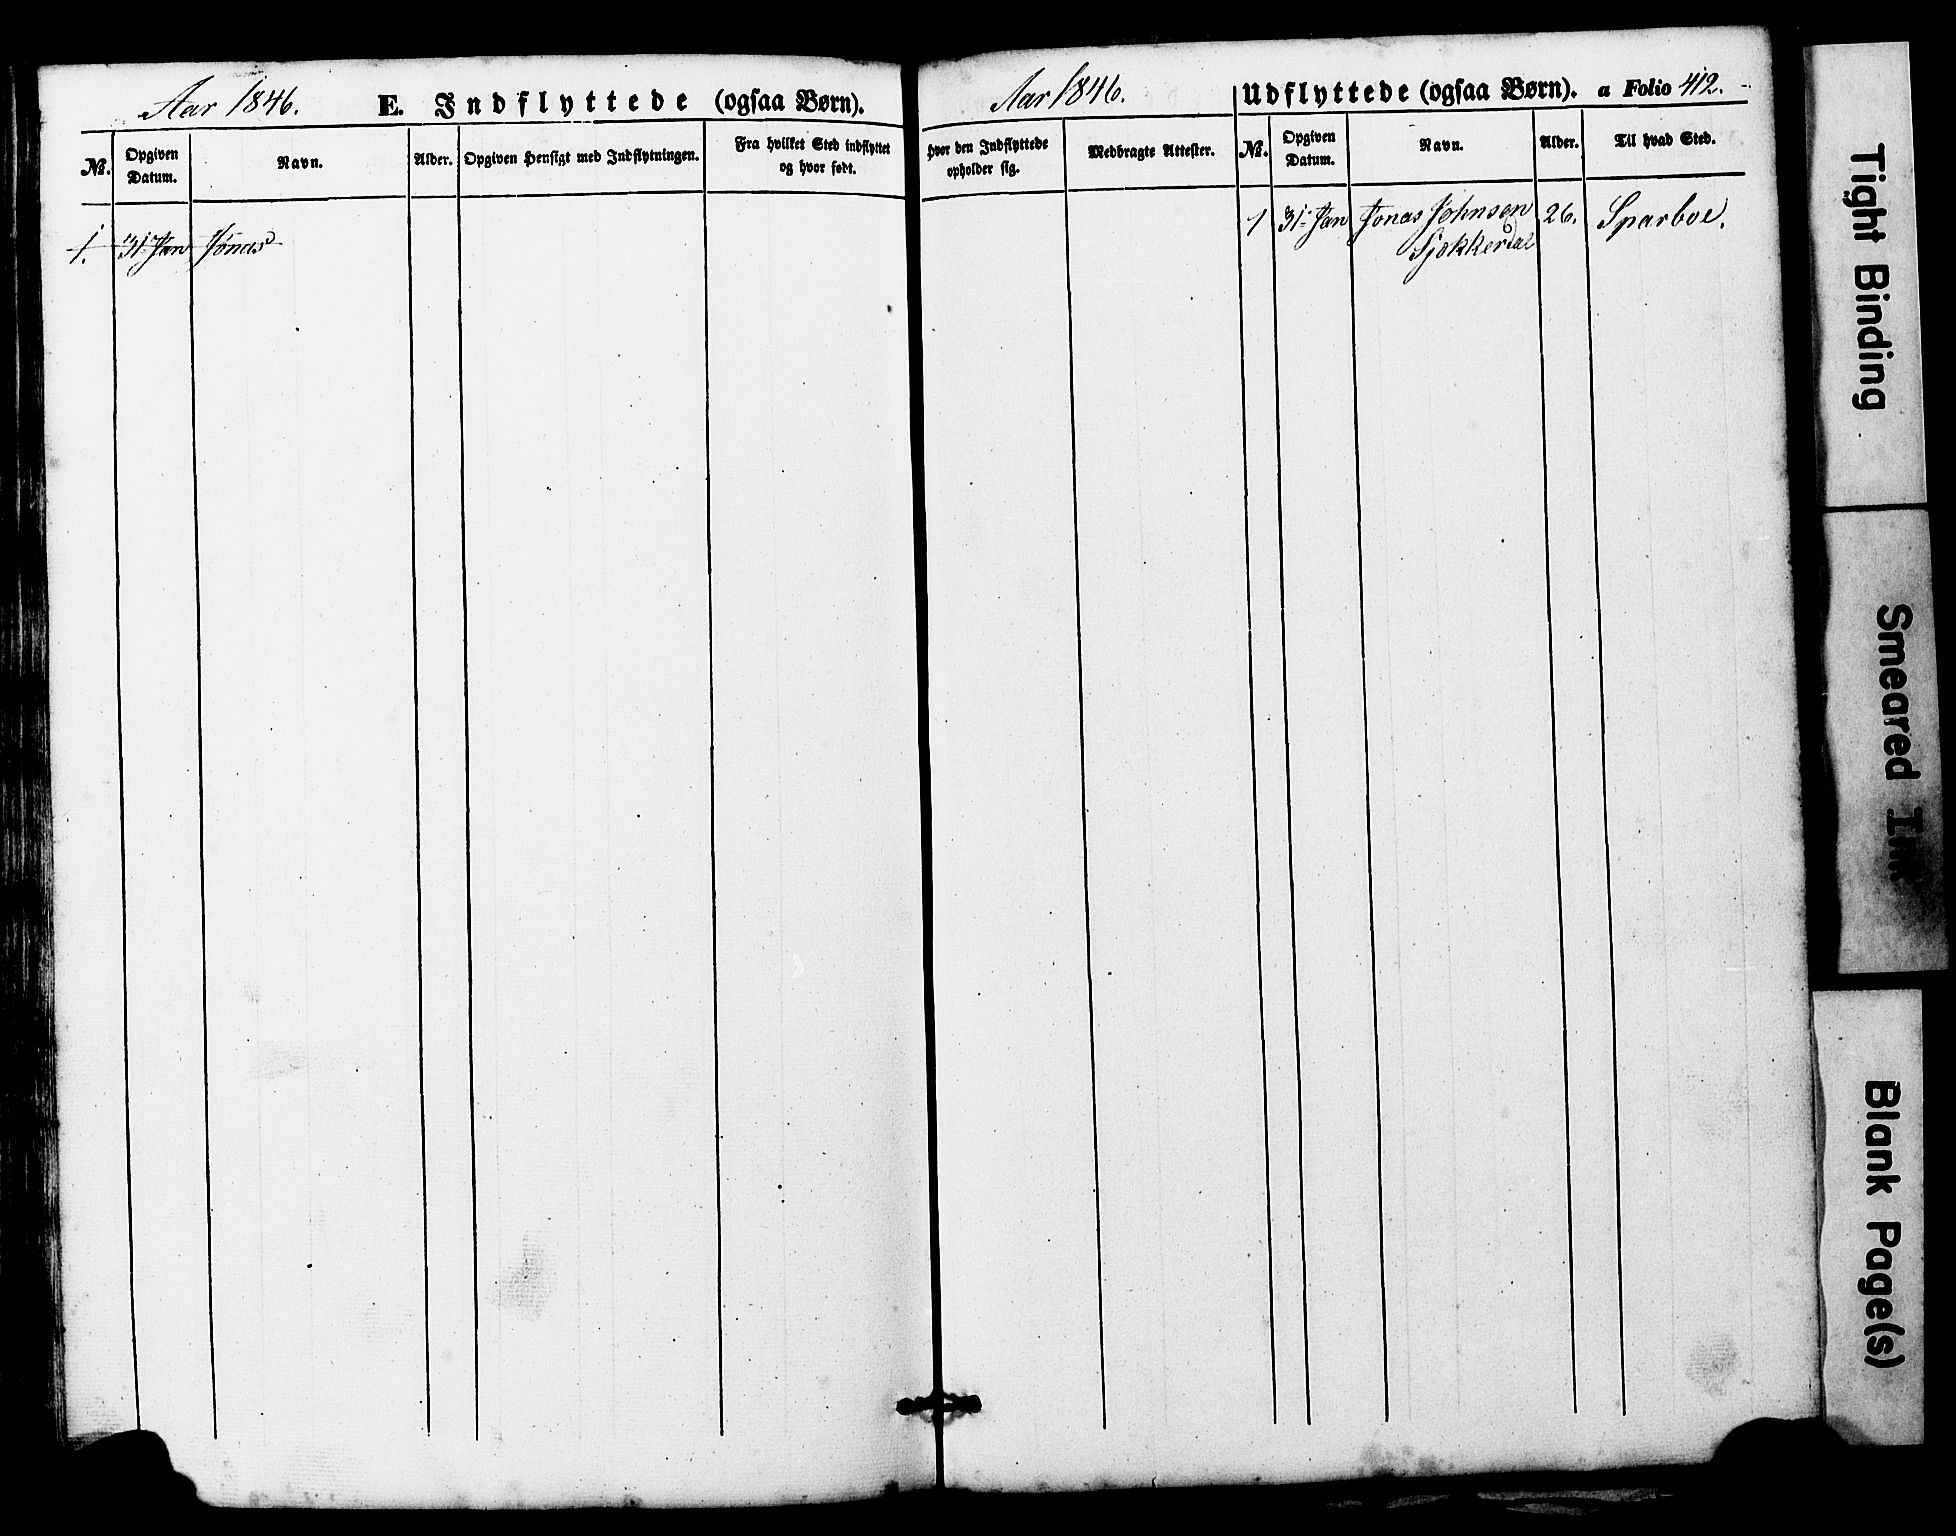 Aar 1846. E. Indflyttede (ogsaa Børn).
№.
Opgiven
Datum.
Navn.
Alder.
Opgiven Hensigt med Indflytningen.
Fra hvilket Sted indflyttet
og hvor født.
1. 31 Jan Jonas
Aar 1846. Udflyttede (ogsaa Børn). a Folio 412.
hvor den Indflyttede
opholder sig.
Medbragte Attester.
№.
Opgiven
Datum.
Navn.
Alder.
Til hvad Sted.
1 31 Jan Jonas Johnsen 26. Sparboe.
Sjøkkerdal
Tight Binding
Smeared Ink
Blank Page(s)